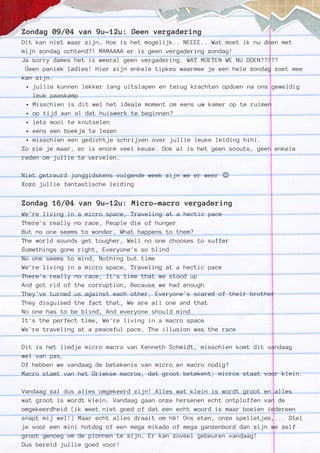 Zondag 09/04 van 9u-12u: Geen vergadering
Dit kan niet waar zijn… Hoe is het mogelijk.. NEEEE.. Wat moet ik nu doen met
mijn zondag ochtend?! MAMAAAA er is geen vergadering zondag!
Ja sorry dames het is weeral geen vergadering. WAT MOETEN WE NU DOEN?????
Geen paniek ladies! Hier zijn enkele tipkes waarmee je een hele zondag zoet mee
kan zijn.
• jullie kunnen lekker lang uitslapen en terug krachten opdoen na ons geweldig
leuk paaskamp
• Misschien is dit wel het ideale moment om eens uw kamer op te ruimen
• op tijd aan al dat huiswerk te beginnen?
• iets mooi te knutselen
• eens een boekje te lezen
• misschien een gedichtje schrijven over jullie leuke leiding hihi.
Zo zie je maar, er is enorm veel keuze. Ook al is het geen scouts, geen enkele
reden om jullie te vervelen.
Niet getreurd jonggidskens volgende week zijn we er weer 😊
Xoxo jullie fantastische leiding
Zondag 16/04 van 9u-12u: Micro-macro vergadering
We're living in a micro space, Traveling at a hectic pace
There's really no race, People die of hunger
But no one seems to wonder, What happens to them?
The world sounds get tougher, Well no one chooses to suffer
Somethings gone right, Everyone's so blind
No one seems to mind, Nothing but time
We're living in a micro space, Traveling at a hectic pace
There's really no race, It's time that we stood up
And got rid of the corruption, Because we had enough
They've turned us against each other, Everyone's scared of their brother
They disguised the fact that, We are all one and that
No one has to be blind, And everyone should mind
It's the perfect time, We're living in a macro space
We're traveling at a peaceful pace, The illusion was the race
Dit is het liedje micro macro van Kenneth Schmidt, misschien komt dit vandaag
wel van pas,
Of hebben we vandaag de betekenis van micro en macro nodig?
Macro stamt van het Griekse macros, dat groot betekent; micros staat voor klein.
Vandaag zal dus alles omgekeerd zijn! Alles wat klein is wordt groot en alles
wat groot is wordt klein. Vandaag gaan onze hersenen echt ontploffen van de
omgekeerdheid (ik weet niet goed of dat een echt woord is maar boeien iedereen
snapt mij wel!) Maar echt alles draait om hè! Ons eten, onze spelletjes,... Stel
je voor een mini hotdog of een mega mikado of mega ganzenbord dan zijn we zelf
groot genoeg om de pionnen te zijn… Er kan zoveel gebeuren vandaag!
Dus bereid jullie goed voor!